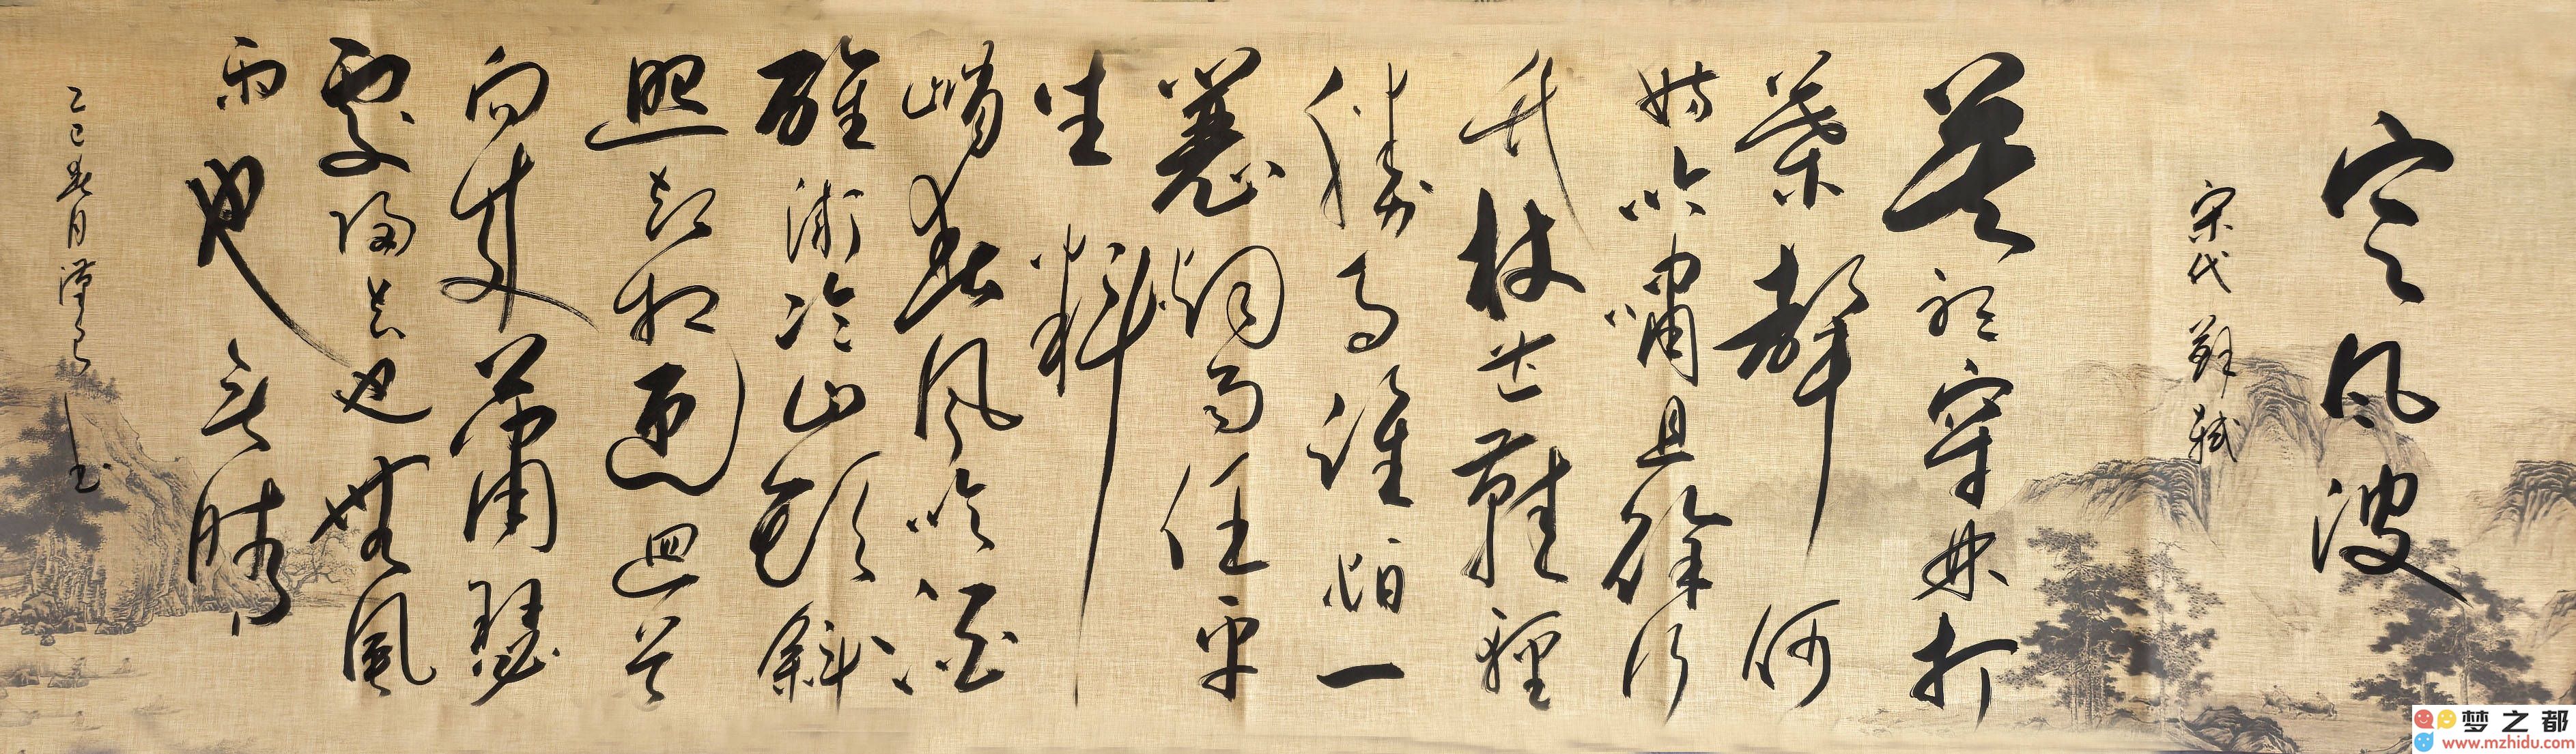 定风波
宋代 蘇軾
莫聽穿林打
葉聲何
妨吟嘯且徐行
竹杖芒鞋輕
勝馬誰怕一
蓑烟雨任平
生料
峭春风吹酒
醒微冷山頭斜
照却相迎回首
向来蕭瑟
處歸去也無風
雨也无晴
乙巳春月 书
梦之都
www.mzhidu.com